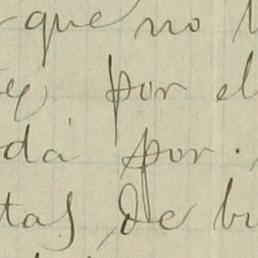 que no
por el
da por
tas de